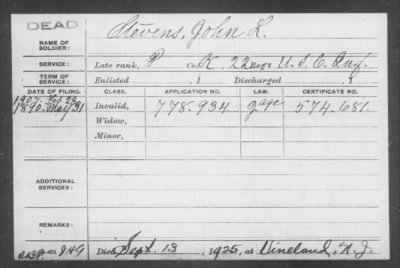 DEAD
NAME OF SOLDIER: Stevens, John L.
SERVICE: Late rank, P Co. K, 22 Reg't U.S.C. Inf.
TERM OF SERVICE: Enlisted , 1 Discharged , 1
DATE OF FILING. CLASS. APPLICATION NO. LAW. CERTIFICATE NO.
1907 Feb 20
1890. 31 Invalid, 778.934 574.681.
Widow,
Minor,
ADDITIONAL SERVICES:
REMARKS:
Died Sept. 13, 1925, at Vineland, N.J.